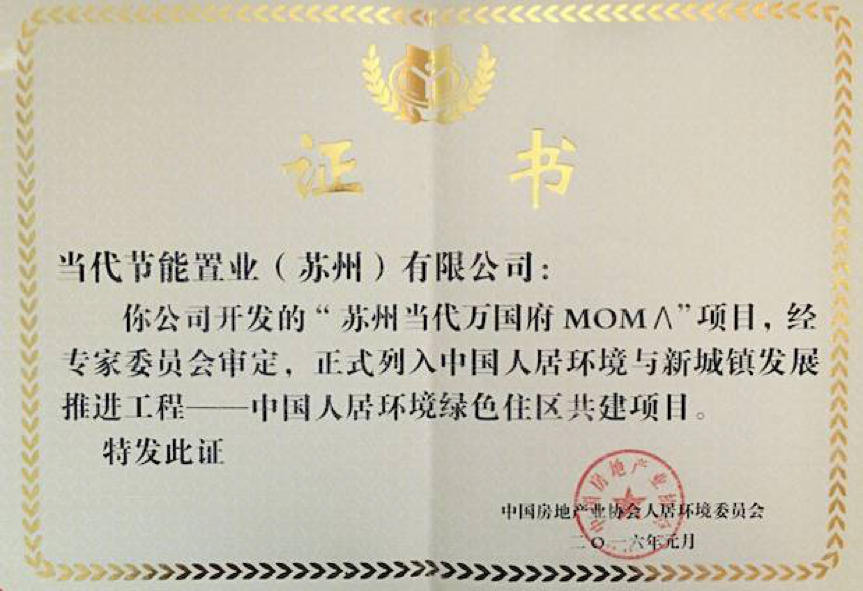 证书
当代节能置业（苏州）有限公司：
你公司开发的“苏州当代万国府MOMΛ”项目，经
专家委员会审定，正式列入中国人居环境与新城镇发展
推进工程——中国人居环境绿色住区共建项目。
特发此证
中国房地产业协会人居环境委员会
二〇一六年元月